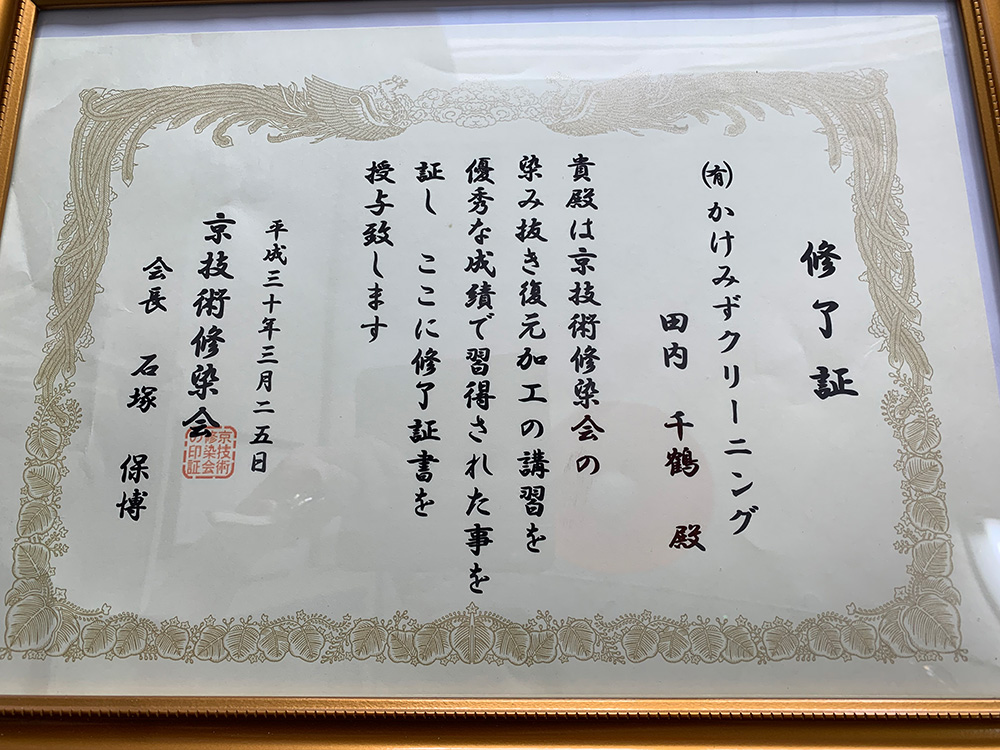 修了証
㈲かけみずクリーニング
田内 千鶴 殿
貴殿は京技術修染会の
染み抜き復元加工の講習を
優秀な成績で習得された事を
証し ここに修了証書を
授与致します
平成三十年三月二五日
京技術修染会
会長 石塚 保博
京技術
修染会
の印証